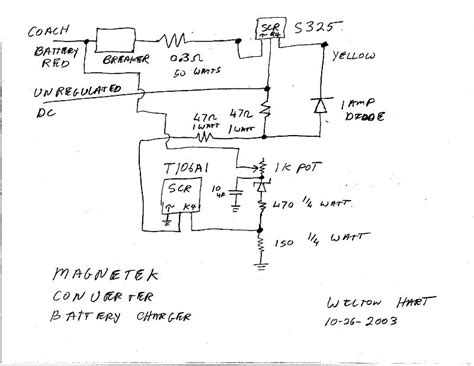 COACH
BATTERY
RED
BREAKER
0.3Ω
50 WATTS
SCR
S325
YELLOW
UNREGULATED
DC
47Ω
1 WATT
47Ω
1 WATT
1 AMP
DIODE
T106A1
SCR
K4
1K POT
10
470 1/4 WATT
150 1/4 WATT
MAGNETEK
CONVERTER
BATTERY CHARGER
WILTON HART
10-26-2003